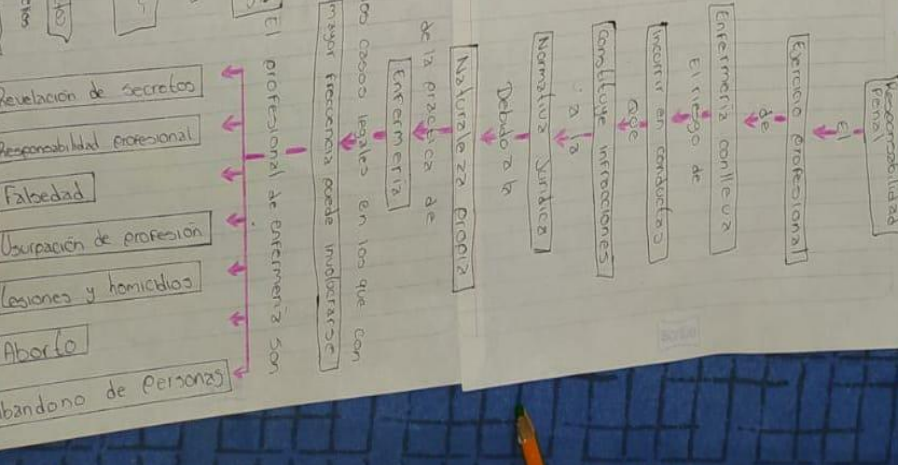 Responsabilidad
Penal
El
Ejercicio profesional
de
Enfermería conlleva
El riesgo de
Incurrir en conductas
que
Constituye infracciones
a la
Normativa jurídica
Debido a la
Naturaleza propia
de la práctica de
Enfermería
casos legales en los que con
mayor frecuencia puede involucrarse
El profesional de enfermería son
Revelación de secretos
Responsabilidad profesional
Falsedad
Usurpación de profesión
Lesiones y homicidios
Aborto
bandono de personas